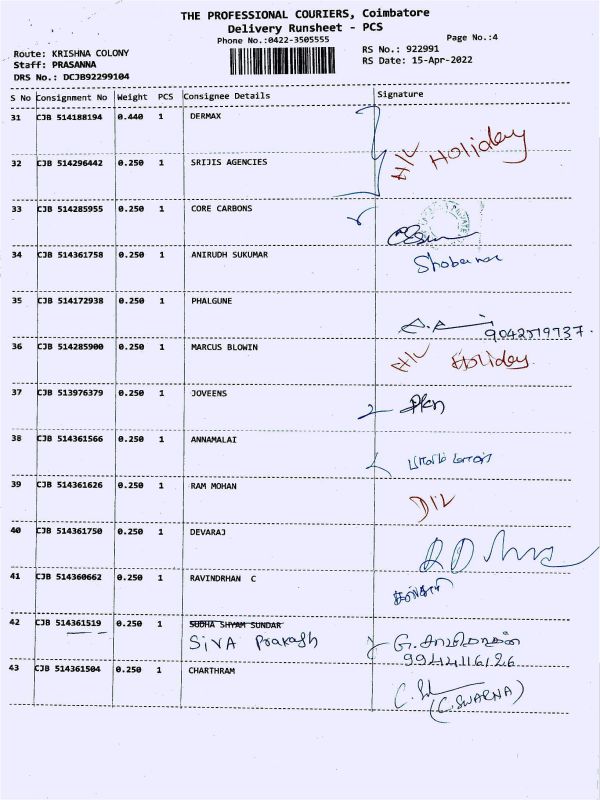 THE PROFESSIONAL COURIERS, Coimbatore
Delivery Runsheet - PCS
Phone No.:0422-3505555
Page No.:4
Route: KRISHNA COLONY
RS No.: 922991
Staff: PRASANNA
RS Date: 15-Apr-2022
DRS No.: DCJB92299104
S No Consignment No Weight PCS Consignee Details Signature
31 CJB 514188194 0.440 1 DERMAX
H/L Holiday
32 CJB 514296442 0.250 1 SRIJIS AGENCIES
33 CJB 514285955 0.250 1 CORE CARBONS
34 CJB 514361758 0.250 1 ANIRUDH SUKUMAR
35 CJB 514172938 0.250 1 PHALGUNE
9042519737.
36 CJB 514285900 0.250 1 MARCUS BLOWIN
H/L Holiday
37 CJB 513976379 0.250 1 JOVEENS
38 CJB 514361566 0.250 1 ANNAMALAI
39 CJB 514361626 0.250 1 RAM MOHAN
D/L
40 CJB 514361750 0.250 1 DEVARAJ
41 CJB 514360662 0.250 1 RAVINDRHAN C
42 CJB 514361519 0.250 1 SUDHA SHYAM SUNDAR
SIVA Prakash
9944116126
43 CJB 514361504 0.250 1 CHARTHRAM
(C. SWARNA)